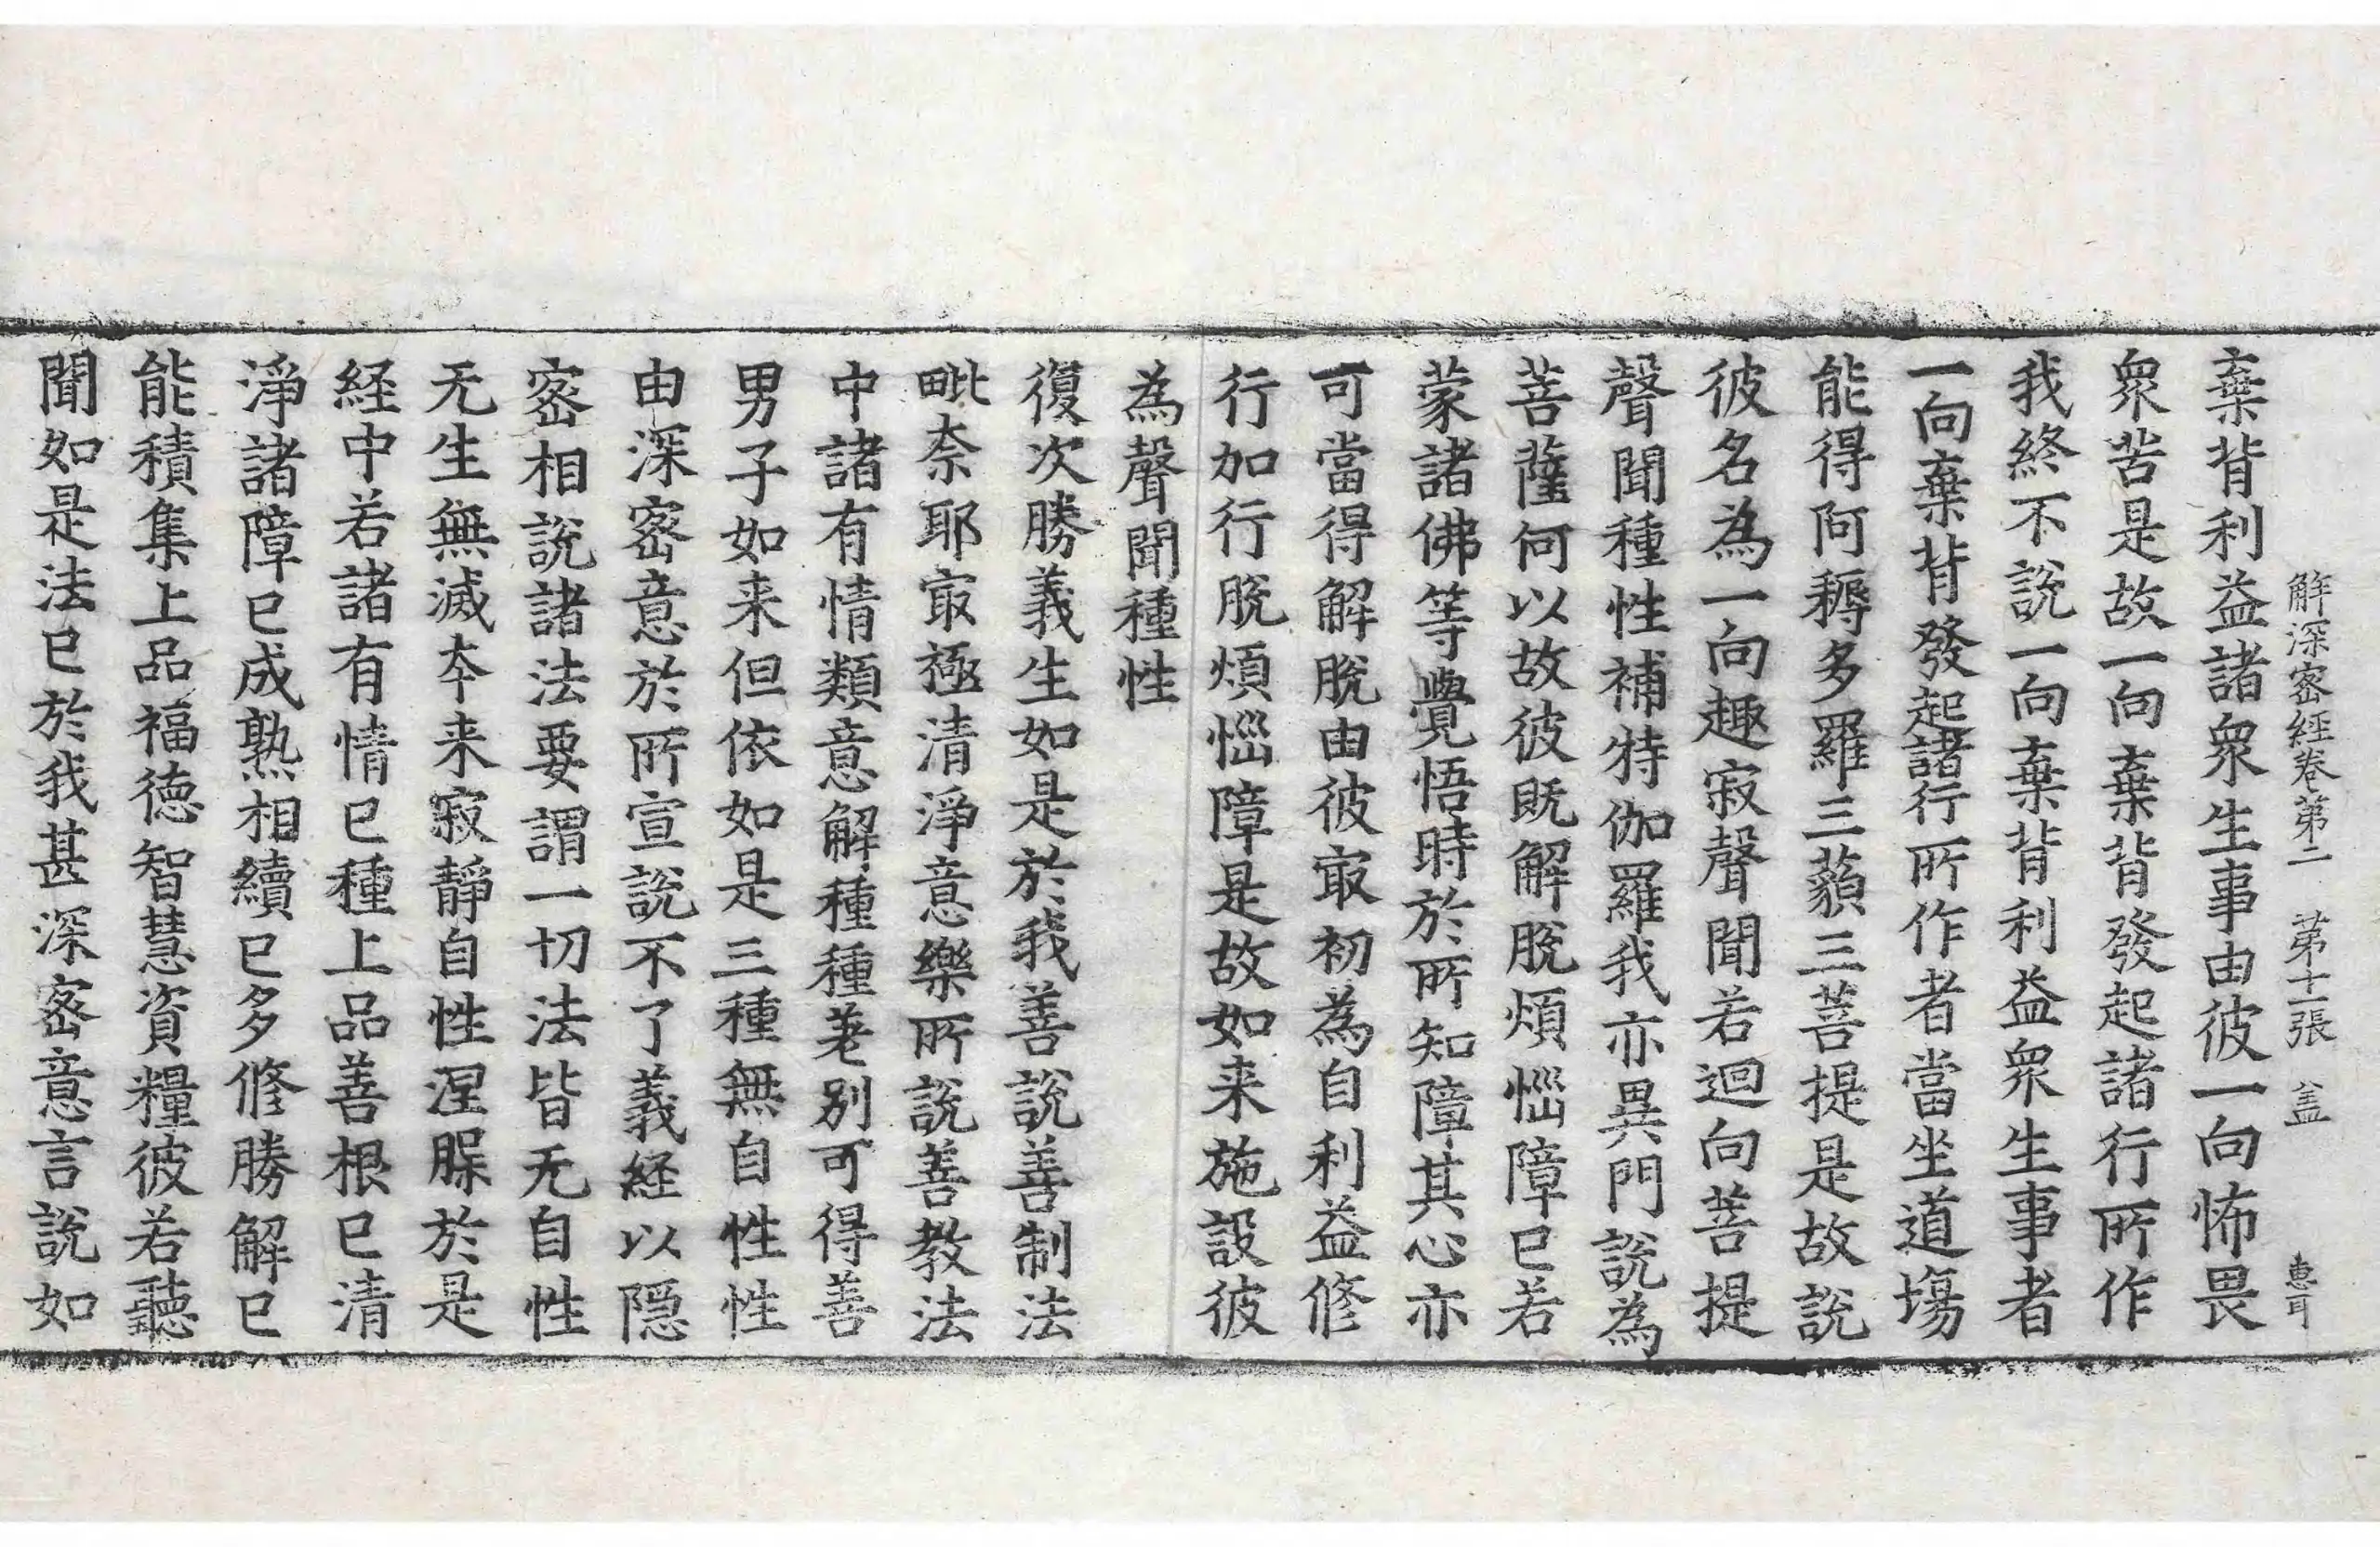 解深密經卷第二　第十一張　盖　惠耳
棄背利益諸衆生事由彼一向怖畏
衆苦是故一向棄背發起諸行所作
我終不說一向棄背利益衆生事者
一向棄背發起諸行所作者當坐道場
能得阿耨多羅三藐三菩提是故說
彼名為一向趣寂聲聞若迴向菩提
聲聞種性補特伽羅我亦異門說為
菩薩何以故彼既解脫煩惱障已若
蒙諸佛等覺悟時於所知障其心亦
可當得解脫由彼㝡初為自利益修
行加行脫煩惱障是故如来施設彼
為聲聞種性
復次勝義生如是於我善說善制法
毗奈耶㝡極清淨意樂所說善教法
中諸有情類意解種種差別可得善
男子如来但依如是三種無自性性
由深密意於所宣說不了義経以隱
密相說諸法要謂一切法皆无自性
无生無滅夲来寂靜自性涅槃於是
経中若諸有情已種上品善根已清
淨諸障已成熟相續已多修勝解已
能積集上品福德智慧資糧彼若聽
聞如是法已於我甚深密意言說如